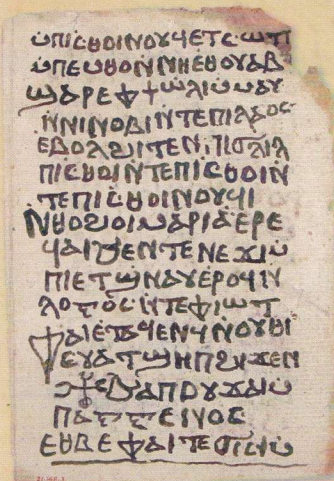 ⲙⲡⲓⲥⲑⲟⲓⲛⲟⲩϥⲉⲧⲥⲱⲧⲡ
ⲙⲡⲉⲙⲑⲟⲛⲛⲏⲉⲑⲟⲩⲁⲃ
ϣⲁⲣⲉⲫϯⲱⲗⲓⲙⲁⲩ
ⲛⲛⲓⲛⲟⲃⲓⲛⲧⲉⲡⲓⲗⲁⲟⲥ
ⲉⲃⲟⲗϩⲓⲧⲉⲛⲡⲓϭⲗⲓⲗ
ⲡⲓⲥⲑⲟⲓⲛⲧⲉⲡⲓⲥⲑⲟⲓⲛ
ⲧⲉⲡⲓⲥⲑⲟⲓⲛⲟⲩϥⲓ
ⲛⲑⲟϩⲟⲓⲙⲁⲣⲓⲁⲉⲣⲉ
ϥⲁⲓϧⲉⲛⲧⲉⲛⲉϫⲓⲙ
ⲡⲓⲉⲧϣⲛⲁⲩⲉⲣⲟϥⲓⲛ
ⲗⲟⲅⲟⲥⲛⲧⲉⲫⲓⲱⲧ
ⲫⲁⲓⲉⲧⲁϥⲉⲛϥⲛⲟⲩⲃⲓ
ⲉⲩⲁⲧϣⲏⲡϩⲓϫⲉⲛ
ⲁⲡⲟⲩϫⲁⲓⲙ
ⲡⲁⲅⲅⲉⲓⲛⲟⲥ
ⲉⲑⲃⲉⲫⲁⲓⲧⲉⲛ